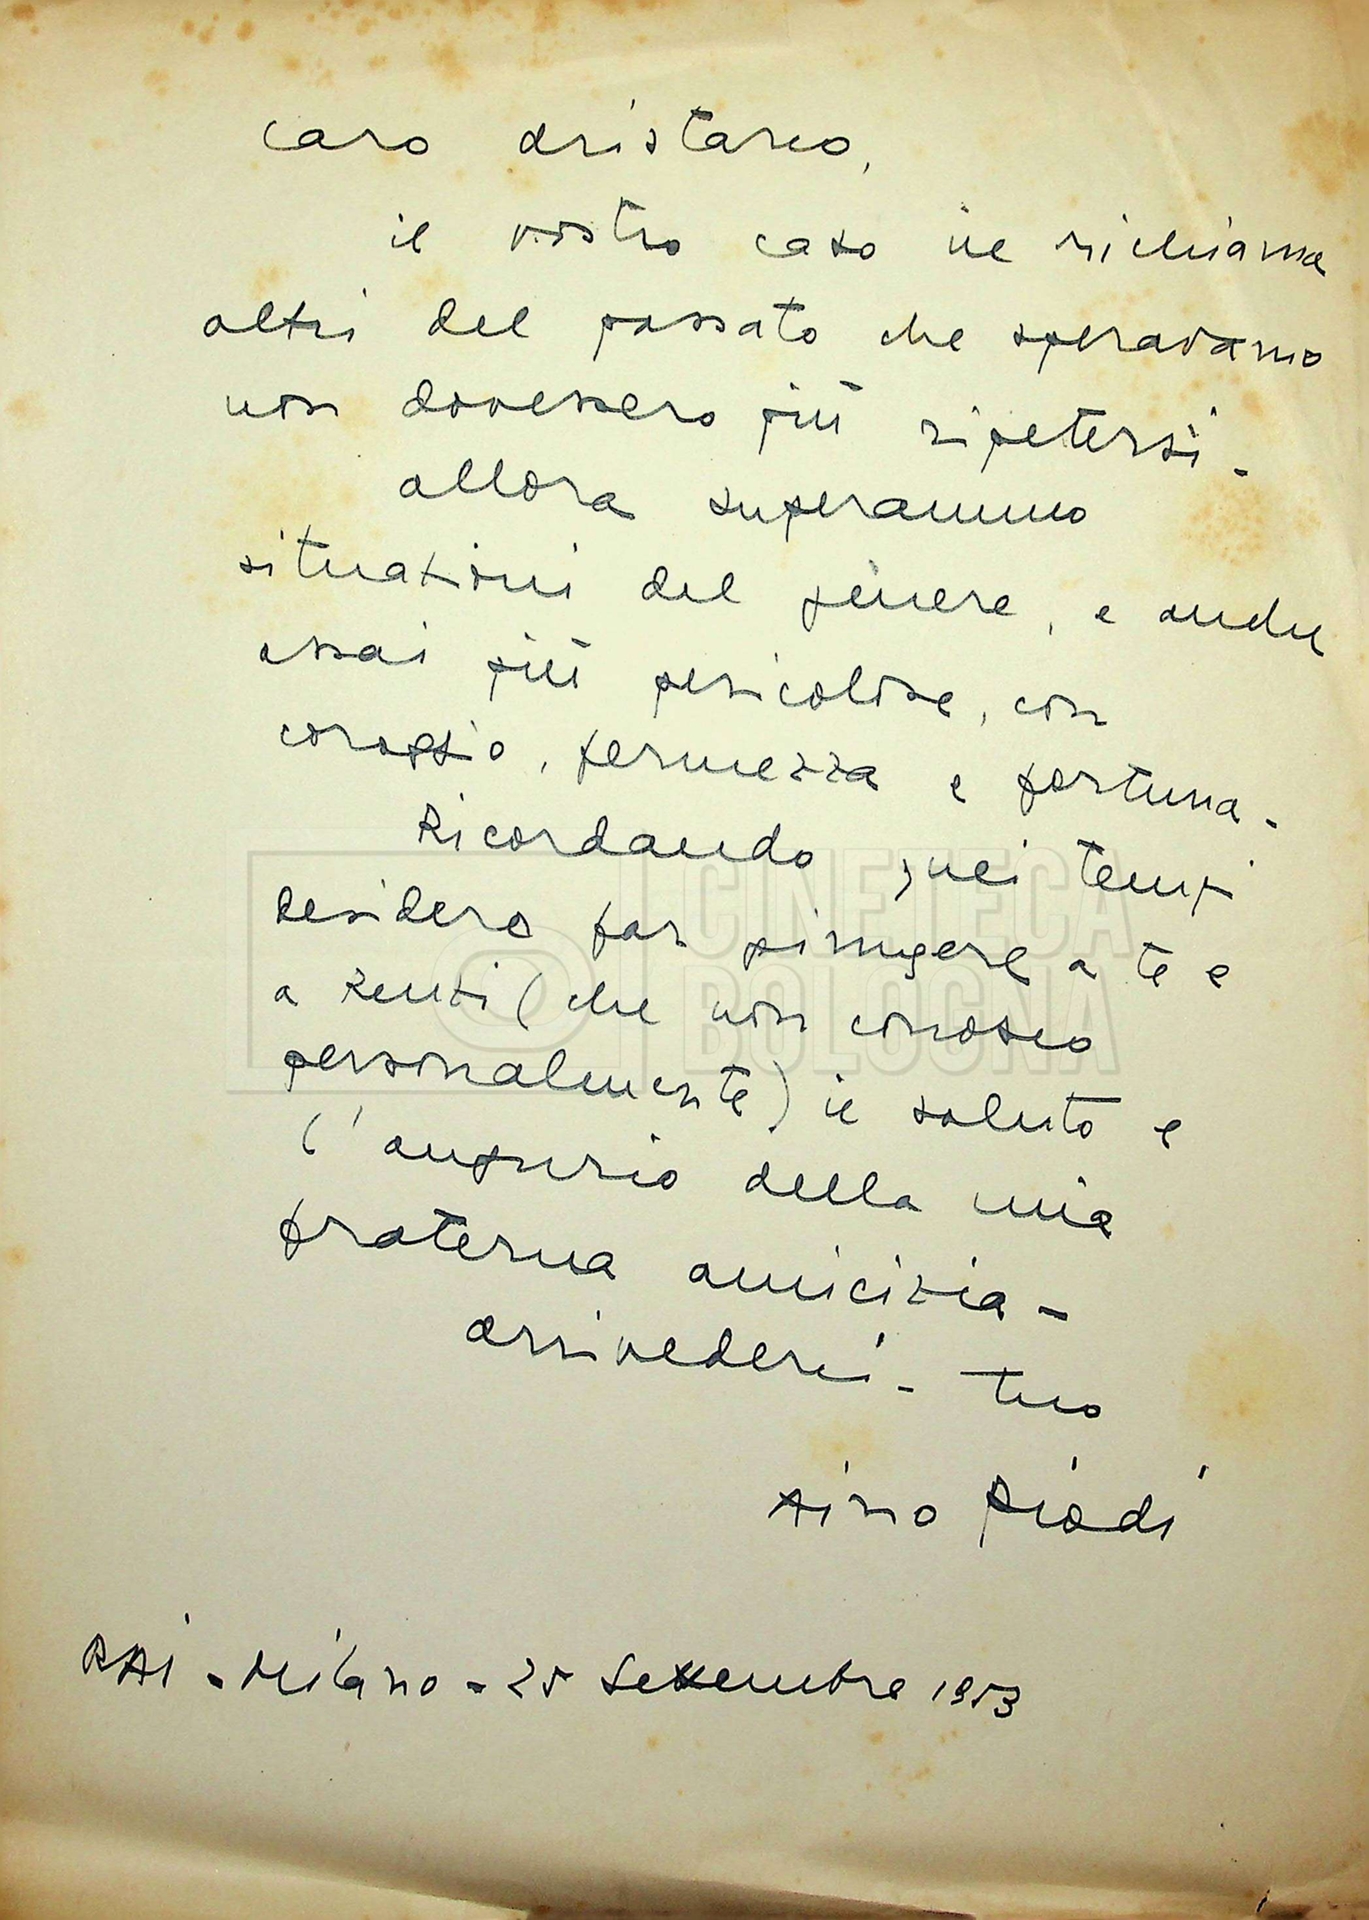 caro Aristarco,
il vostro caso ne richiama
altri del passato che speravamo
non dovessero più ripetersi -
allora superammo
situazioni del genere, e anche
assai più pericolose, con
coraggio, fermezza e fortuna -
Ricordando quei tempi
desidero far giungere a te e
a Renzi (che non conosco
personalmente) il saluto e
l'augurio della mia
fraterna amicizia -
arrivederci - tuo
RAI - Milano - 25 Settembre 1953
CINETECA
BOLOGNA